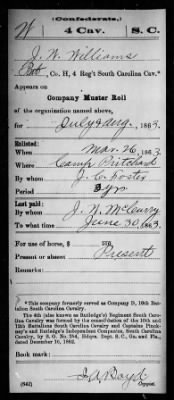 (Confederate.)
W 4 Cav. S. C.
J. W. Williams
Pvt, Co. H, 4 Reg't South Carolina Cav.*
Appears on
Company Muster Roll
of the organization named above,
for July & Aug, 1863.
Enlisted:
When Mar. 26, 1863
Where Camp Pritchard
By whom J. C. Foster
Period 3 yrs
Last paid:
By whom J. N. McCurry
To what time June 30, 1863
For use of horse, $
Present or absent Present
Remarks:
* This company formerly served as Company D, 10th Battalion South Carolina Cavalry.
The 4th (also known as Rutledge's) Regiment South Carolina Cavalry was formed by the consolidation of the 10th and 12th Battalions South Carolina Cavalry and Captains Pinckney's and Rutledge's Independent Companies, South Carolina Cavalry, by S. O. No. 254, Hdqrs. Dept. S. C., Ga. and Fla., dated December 16, 1862.
Book mark:
(642)
Boyd
Copyist.